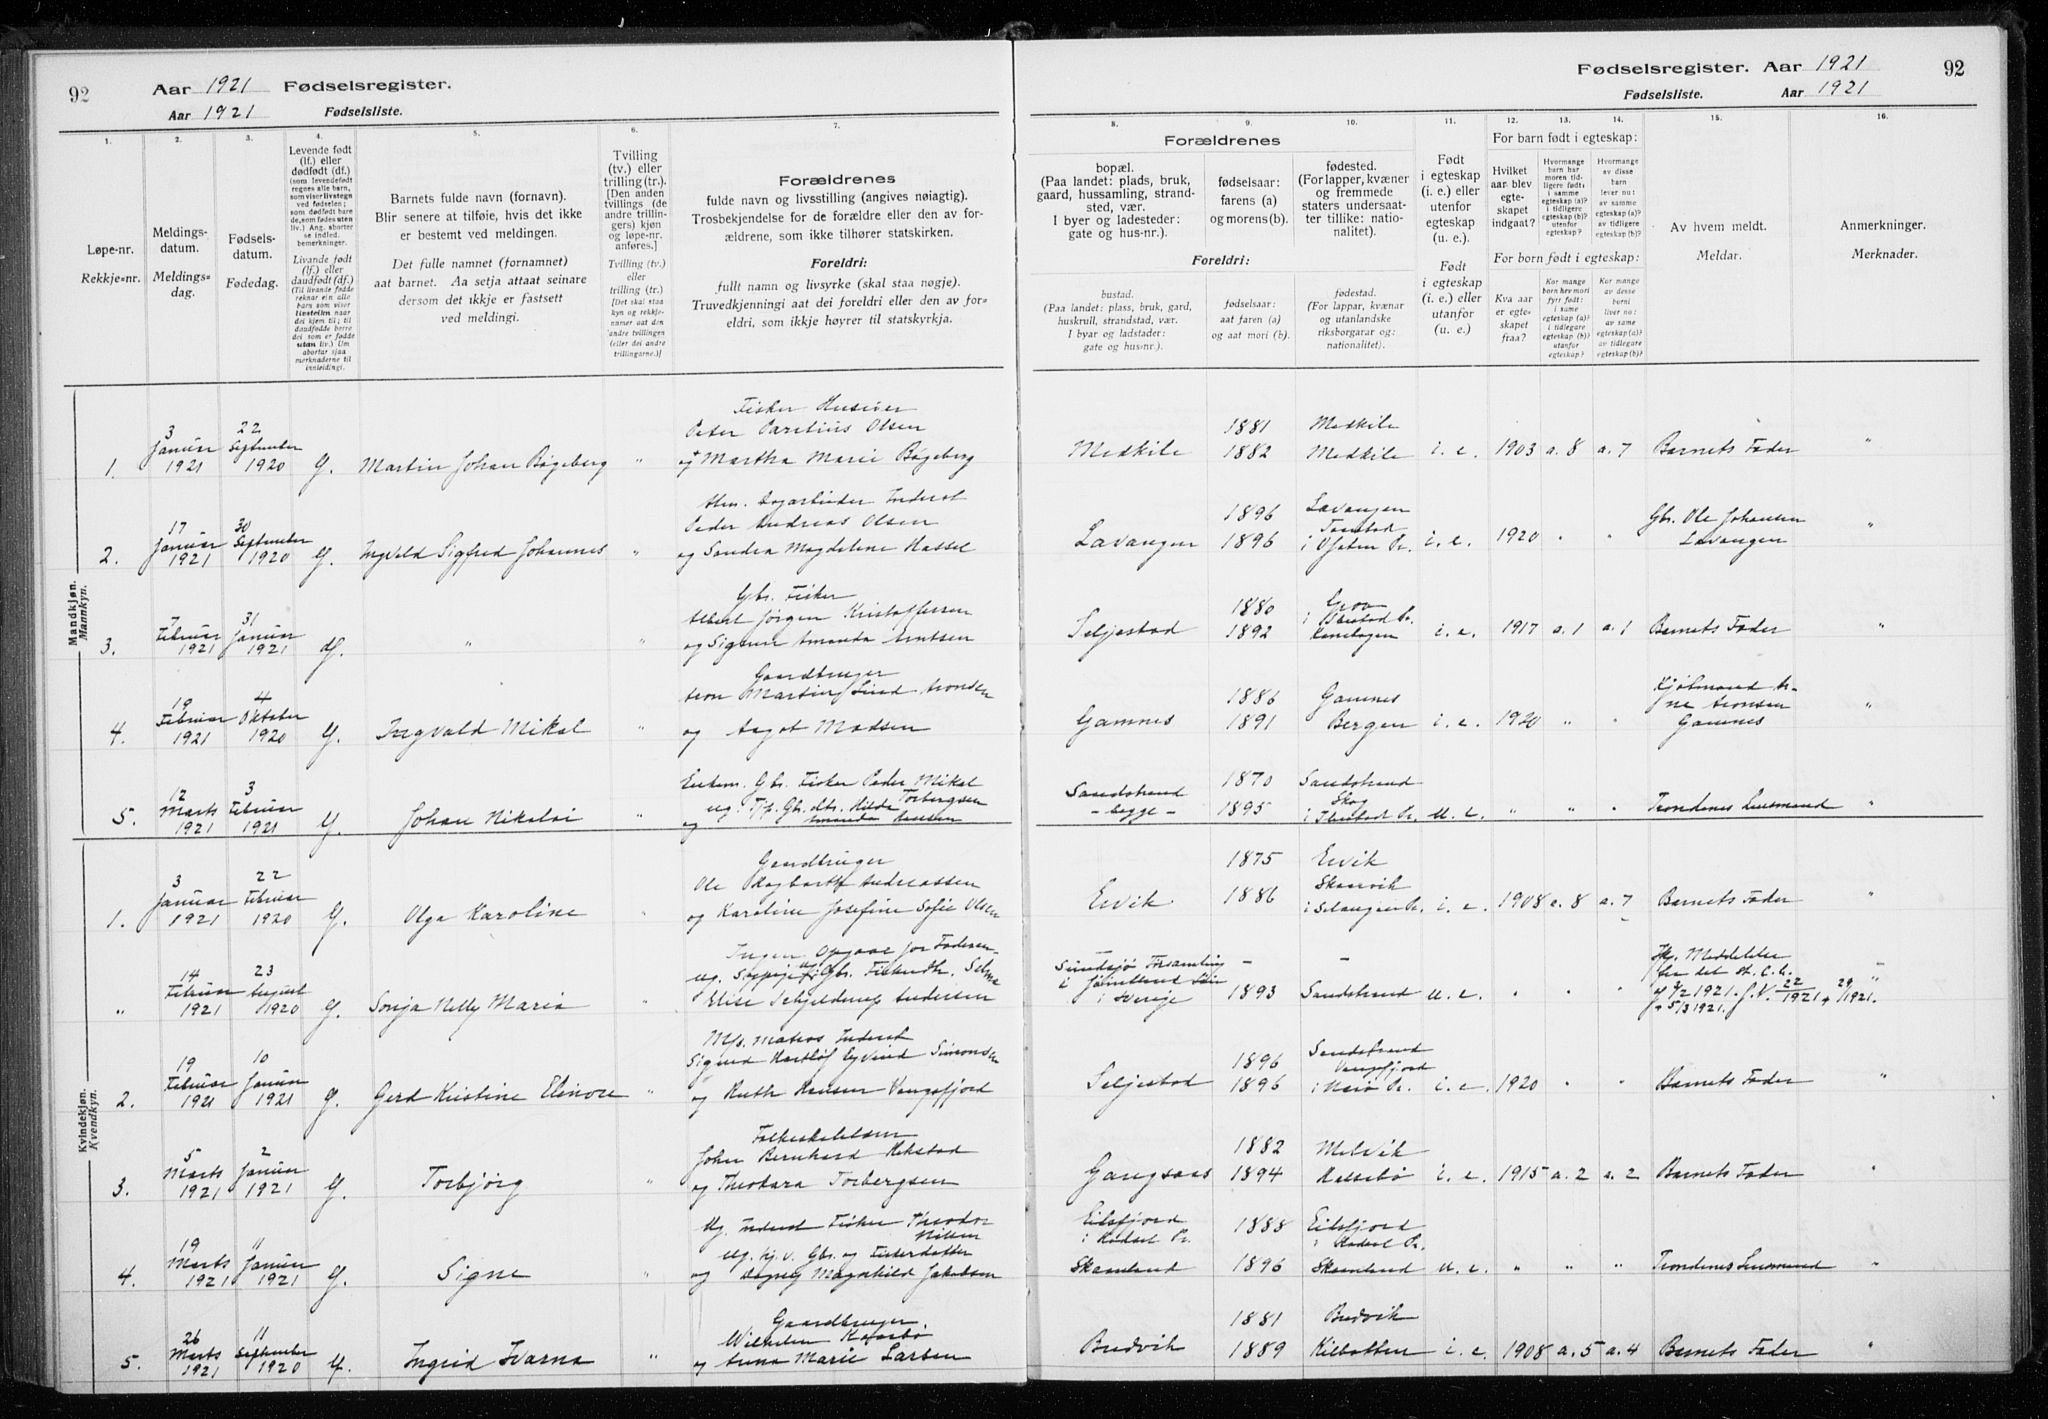 92
Aar 1921 Fødselsregister.
Aar 1921 Fødselsliste.
Fødselsregister. Aar 1921 92
Fødselsliste. Aar 1921
1.
Løpe-nr.
Rekkje=nr.
2.
Meldings-
datum.
Meldings=
dag.
3.
Fødsels-
datum.
Fødedag.
4.
Levende født
(lf.) eller
dødfødt (df.)
(som levendefødt
regnes alle barn,
som viser livstegn
ved fødselen;
som dødfødt bare
de, som fødes uten
liv.) Ang. aborter
se indled.
bemerkninger.
Livande født
(lf.) eller
daudfødt (df.)
(Til livande fødde
reknar ein alle
born som viser
livsteikn naar
dei kjem til; til
daudfødde berre
dei som er fødde
utan liv.) Um
abortar sjaa
merknaderne til
innleidingi.
5.
Barnets fulde navn (fornavn).
Blir senere at tilføie, hvis det ikke
er bestemt ved meldingen.
Det fulle namnet (fornamnet)
aat barnet. Aa setja attaat seinare
dersom det ikkje er fastsett
ved meldingi.
6.
Tvilling
(tv.) eller
trilling (tr.).
[Den anden
tvillings (de
andre trillin-
gers) kjøn
og løpe-nr.
anføres.]
Tvilling (tv.)
eller
trilling (tr.)
[Det skal staa
kyn og rekkje-
numer aat den
andre tvillingen
(eller dei andre
trillingarne.)]
7.
Forældrenes
fulde navn og livsstilling (angives nøiagtig).
Trosbekjendelse for de forældre eller den av for-
ældrene, som ikke tilhører statskirken.
Foreldri:
fullt namn og livsyrke (skal staa nøgje).
Truvedkjenningi aat dei foreldri eller den av for=
eldri, som ikkje høyrer til statskyrkja.
Forældrenes
8.
bopæl.
(Paa landet: plads, bruk,
gaard, hussamling, strand-
sted, vær.
I byer og ladesteder:
gate og hus-nr.).
9.
fødselsaar:
farens (a)
og morens (b).
10.
fødested.
(For lapper, kvæner
og fremmede
staters undersaat-
ter tillike: natio-
nalitet).
Foreldri:
bustad.
(Paa landet: plass, bruk, gard,
huskrull, strandstad, vær.
I byar og ladstader:
gate og hus-nr.).
fødselsaar:
aat faren (a)
og aat mori (b).
fødestad.
(For lappar, kvænar
og utanlandske
riksborgarar og:
nationalitet).
11.
Født
i egteskap
(i. e.) eller
utenfor
egteskap
(u. e.).
Født
i egteskap
(i. e.) eller
utanfor
(u. e.).
12. 13. 14.
For barn født i egteskap:
Hvilket
aar blev
egte-
skapet
indgaat?
Hvormange
barn har
moren tid-
ligere født:
i samme
egteskap (a)?
i tidligere
egteskap (b)?
utenfor
egteskap?
Hvormange
av disse
barn
lever nu:
av samme
egteskap (a)?
av tidligere
egteskap (b)?
For born født i egteskap:
Kva aar
er egte-
skapet
fraa?
Kor mange
born hev mori
fyrr født:
i same
egteskap (a)?
i tidlegare
egteskap (b)?
utanfor
egteskap?
Kor mange
av desse
borni
liver no:
av same
egteskap (a)?
av tidlegare
egteskap (b)?
15.
Av hvem meldt.
Meldar.
16.
Anmerkninger.
Merknader.
Mandkjøn.
Mankyn.
1. 3 Januar 1921 22 September 1920 lf. Martin Johan Bøgeberg "
Fisker Huseier
Peder Paretius Olsen
og Martha Marie Bøgeberg
Medkile 1881 Medkile
1882 Medkile i. e. 1903 a. 8 a. 7 Barnets Fader "
2. 17 Januar 1921 30 September 1920 lf. Ingvald Sigfred Johannes "
Peder Andreas Olsen
og Sandra Magdalene Hassel
Lavangen 1896 Lavangen
1896 i Ofoten Pr. i. e. 1920 " " Gbr. Ole Johansen
Lavangen "
3. 7 Februar 1921 31 Januar 1921 df. " "
Gbr. Fisker
Albert Jørgen Kristoffersen
og Signe Amanda Arntsen
Seljestad 1880 Grov
i Ibestad Pr.
1892 Kanebogen i. e. 1917 a. 1 a. 1 Barnets Fader "
4. 19 Februar 1921 4 Oktober 1920 lf. Ingvald Mikal "
Gaardbruger
Aron Martin Lind Aronsen
og Aagot Madsen
Gamnes 1886 Gamnes
1891 Bergen i. e. 1920 " " Kjøbmand Ar-
ne Aronsen
Gamnes "
5. 12 Marts 1921 3 Februar 1921 lf. Johan Nikolai "
Enkem. Gbr. Fisker Peder Mikal
Torbergsen
og ug. Tj. Gbr. dtr. Hilda
Amanda Hansen
Sandstrand
- begge - 1870 Sandstrand
1895 Skog
i Ibestad Pr. u. e. " " " Trondenes Lensmand "
Kvindekjøn.
Kvendkyn.
1. 3 Januar 1921 22 Februar 1920 lf. Olga Karoline "
Gaardbruger
Ole Dagbarth Andreassen
og Karoline Josefine Sofie Olsen
Ervik 1875 Ervik
1886 Skaarvik
i Salangen Pr. i. e. 1908 a. 8 a. 7 Barnets Fader "
" 14 Februar 1921 23 August 1920 lf. Sonja Nelly Maria "
Ingen Opgave for Faderen
ug. Gbr. Fiskerdtr. Selma
Elise Schjelderup Andersen
Sundsjø Forsamling
i Jämtland Län
i Sverige - -
1893 Sandstrand u. e. " " " Meddelelse
fra det st. C. B.
"
2. 19 Februar 1921 10 Januar 1921 lf. Gerd Kristine Elinore "
Sigurd Hartløf Eyvind Simonsen
og Ruth Hansen Vangsfjord
Seljestad 1896 Sandstrand
1896 Vangsfjord
i. e. 1920 " " Barnets Fader "
3. 5 Marts 1921 2 Januar 1921 lf. Torbjørg "
Folkeskolelærer
Johan Bernhard Rekstad
og Theodora Torbergsen
Gangsaas 1882 Melvik
1894 Kassebø i. e. 1915 a. 2 a. 2 Barnets Fader "
4. 19 Marts 1921 11 Januar 1921 lf. Signe "
Ug. Inderst Fisker Theodor
Nilsen
ug. hj. v. Gbr. og Fiskerdatter
og Dagny Magnhild Jakobsen
Eidsfjord
i Hadsel Pr. 1888 Eidsfjord
i Hadsel Pr.
Skaanland 1896 Skaanland u. e. " " " Trondenes Lensmand "
5. 26 Marts 1921 11 September 1920 lf. Ingrid Ivarna "
Gaardbruger
Wilhelm Kaarbø
og Anna Marie Larsen
Brudvik 1881 Brudvik
1889 Kilbotten i. e. 1908 a. 5 a. 4 Barnets Fader "